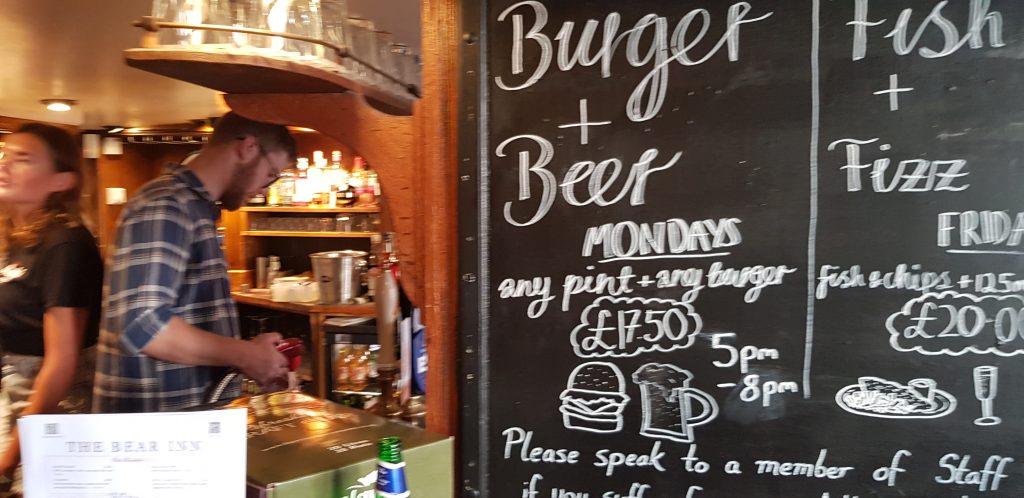 Burger
+
Beer
MONDAYS
any pint + any burger
£17.50
5pm
- 8pm
Fish
+
Fizz
FRIDA
fish & chips + 125m
£20.00
Please speak to a member of Staff
if you
THE BEAR INN